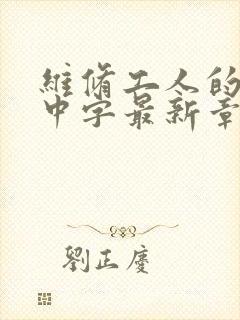 維脩工人的
中字最新章
劉正慶